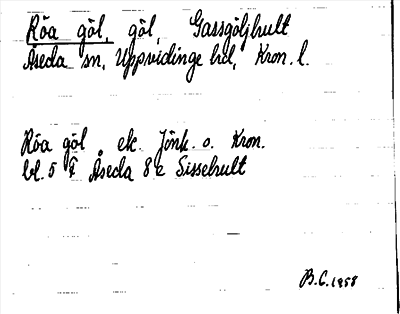 Röa göl, göl, Gassgöljhult
Åseda sn, Uppvidinge hd, Kron. l.
Röa göl ek. Jönk. o. Kron.
bl. 5 F Åseda 8 e Sisselhult
B.C. 1958